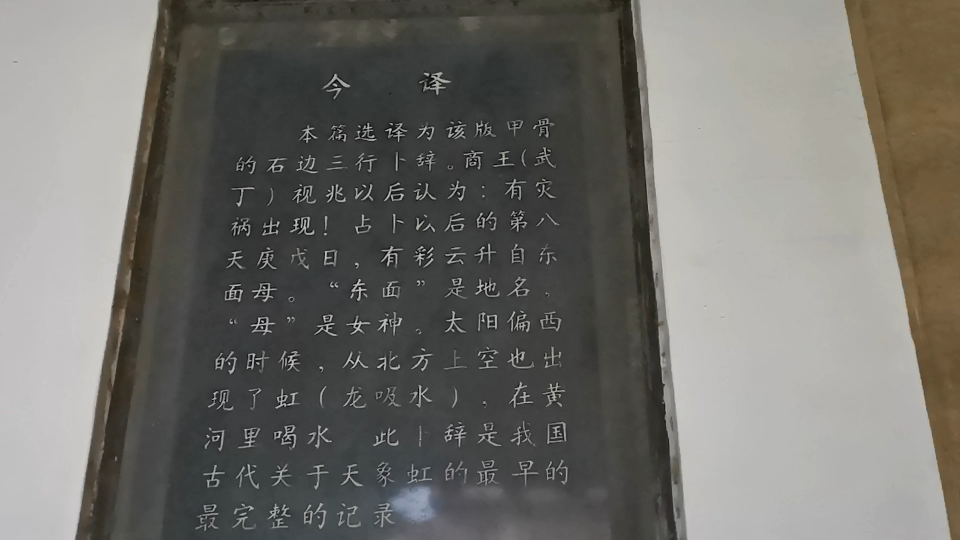 今 译
本篇选译为该版甲骨
的石边三行卜辞。商王(武
丁)视兆以后认为:有灾
祸出现!占卜以后的第八
天庚戌日,有彩云升自东
面母。“东面”是地名,
“母”是女神。太阳偏西
的时候,从北方上空也出
现了虹(龙吸水),在黄
河里喝水 此卜辞是我国
古代关于天象虹的最早的
最完整的记录